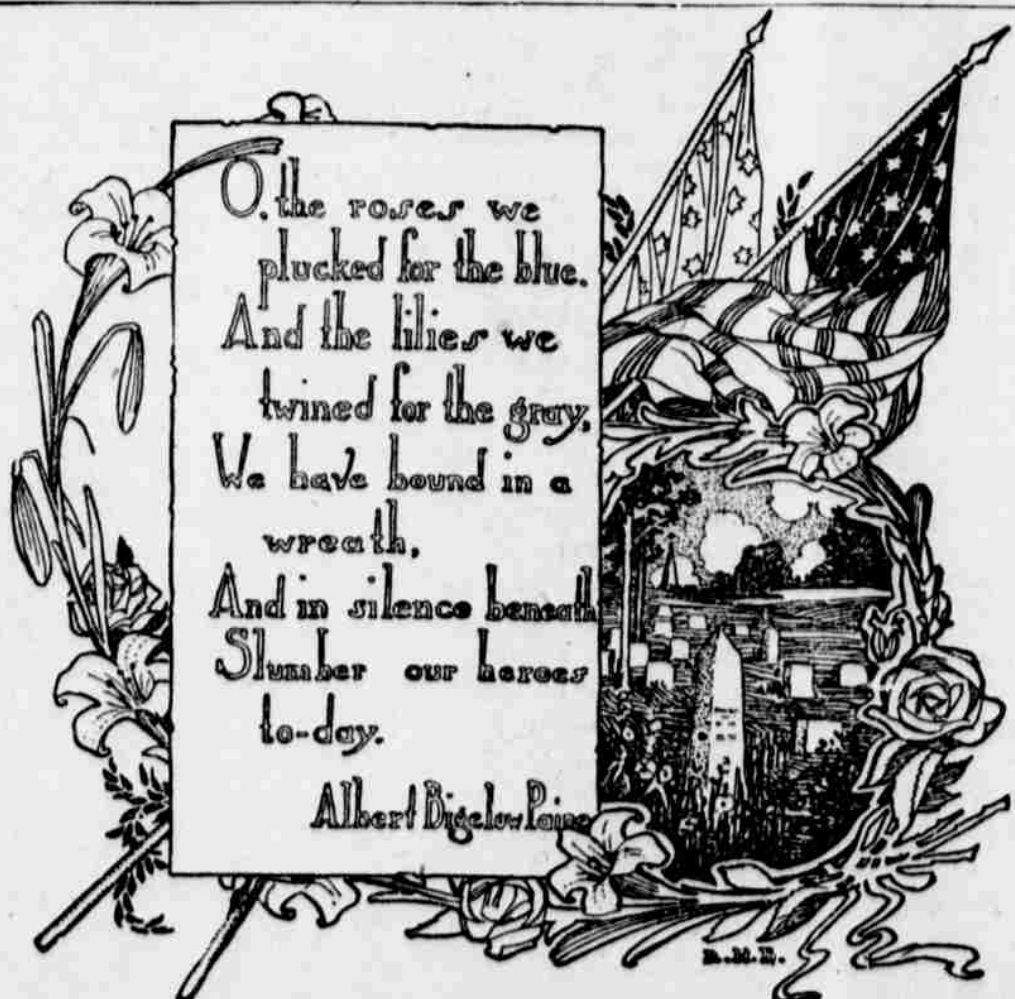 O, the roses we
plucked for the blue.
And the lilies we
twined for the gray,
We have bound in a
wreath,
And in silence beneath
Slumber our heroes
to-day.
Albert Bigelow Paine